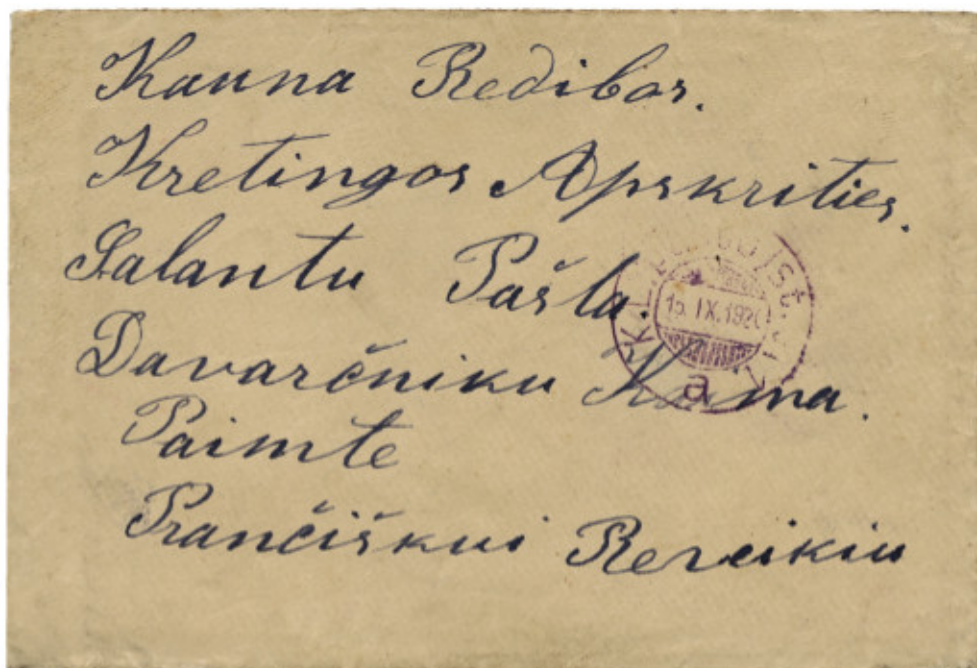 Kauna Redibos.
Kretingos Apskrities.
Salantu Pašta.
Davarčniku Kaima.
Paimte
Prančiškui
15. IX. 192
a